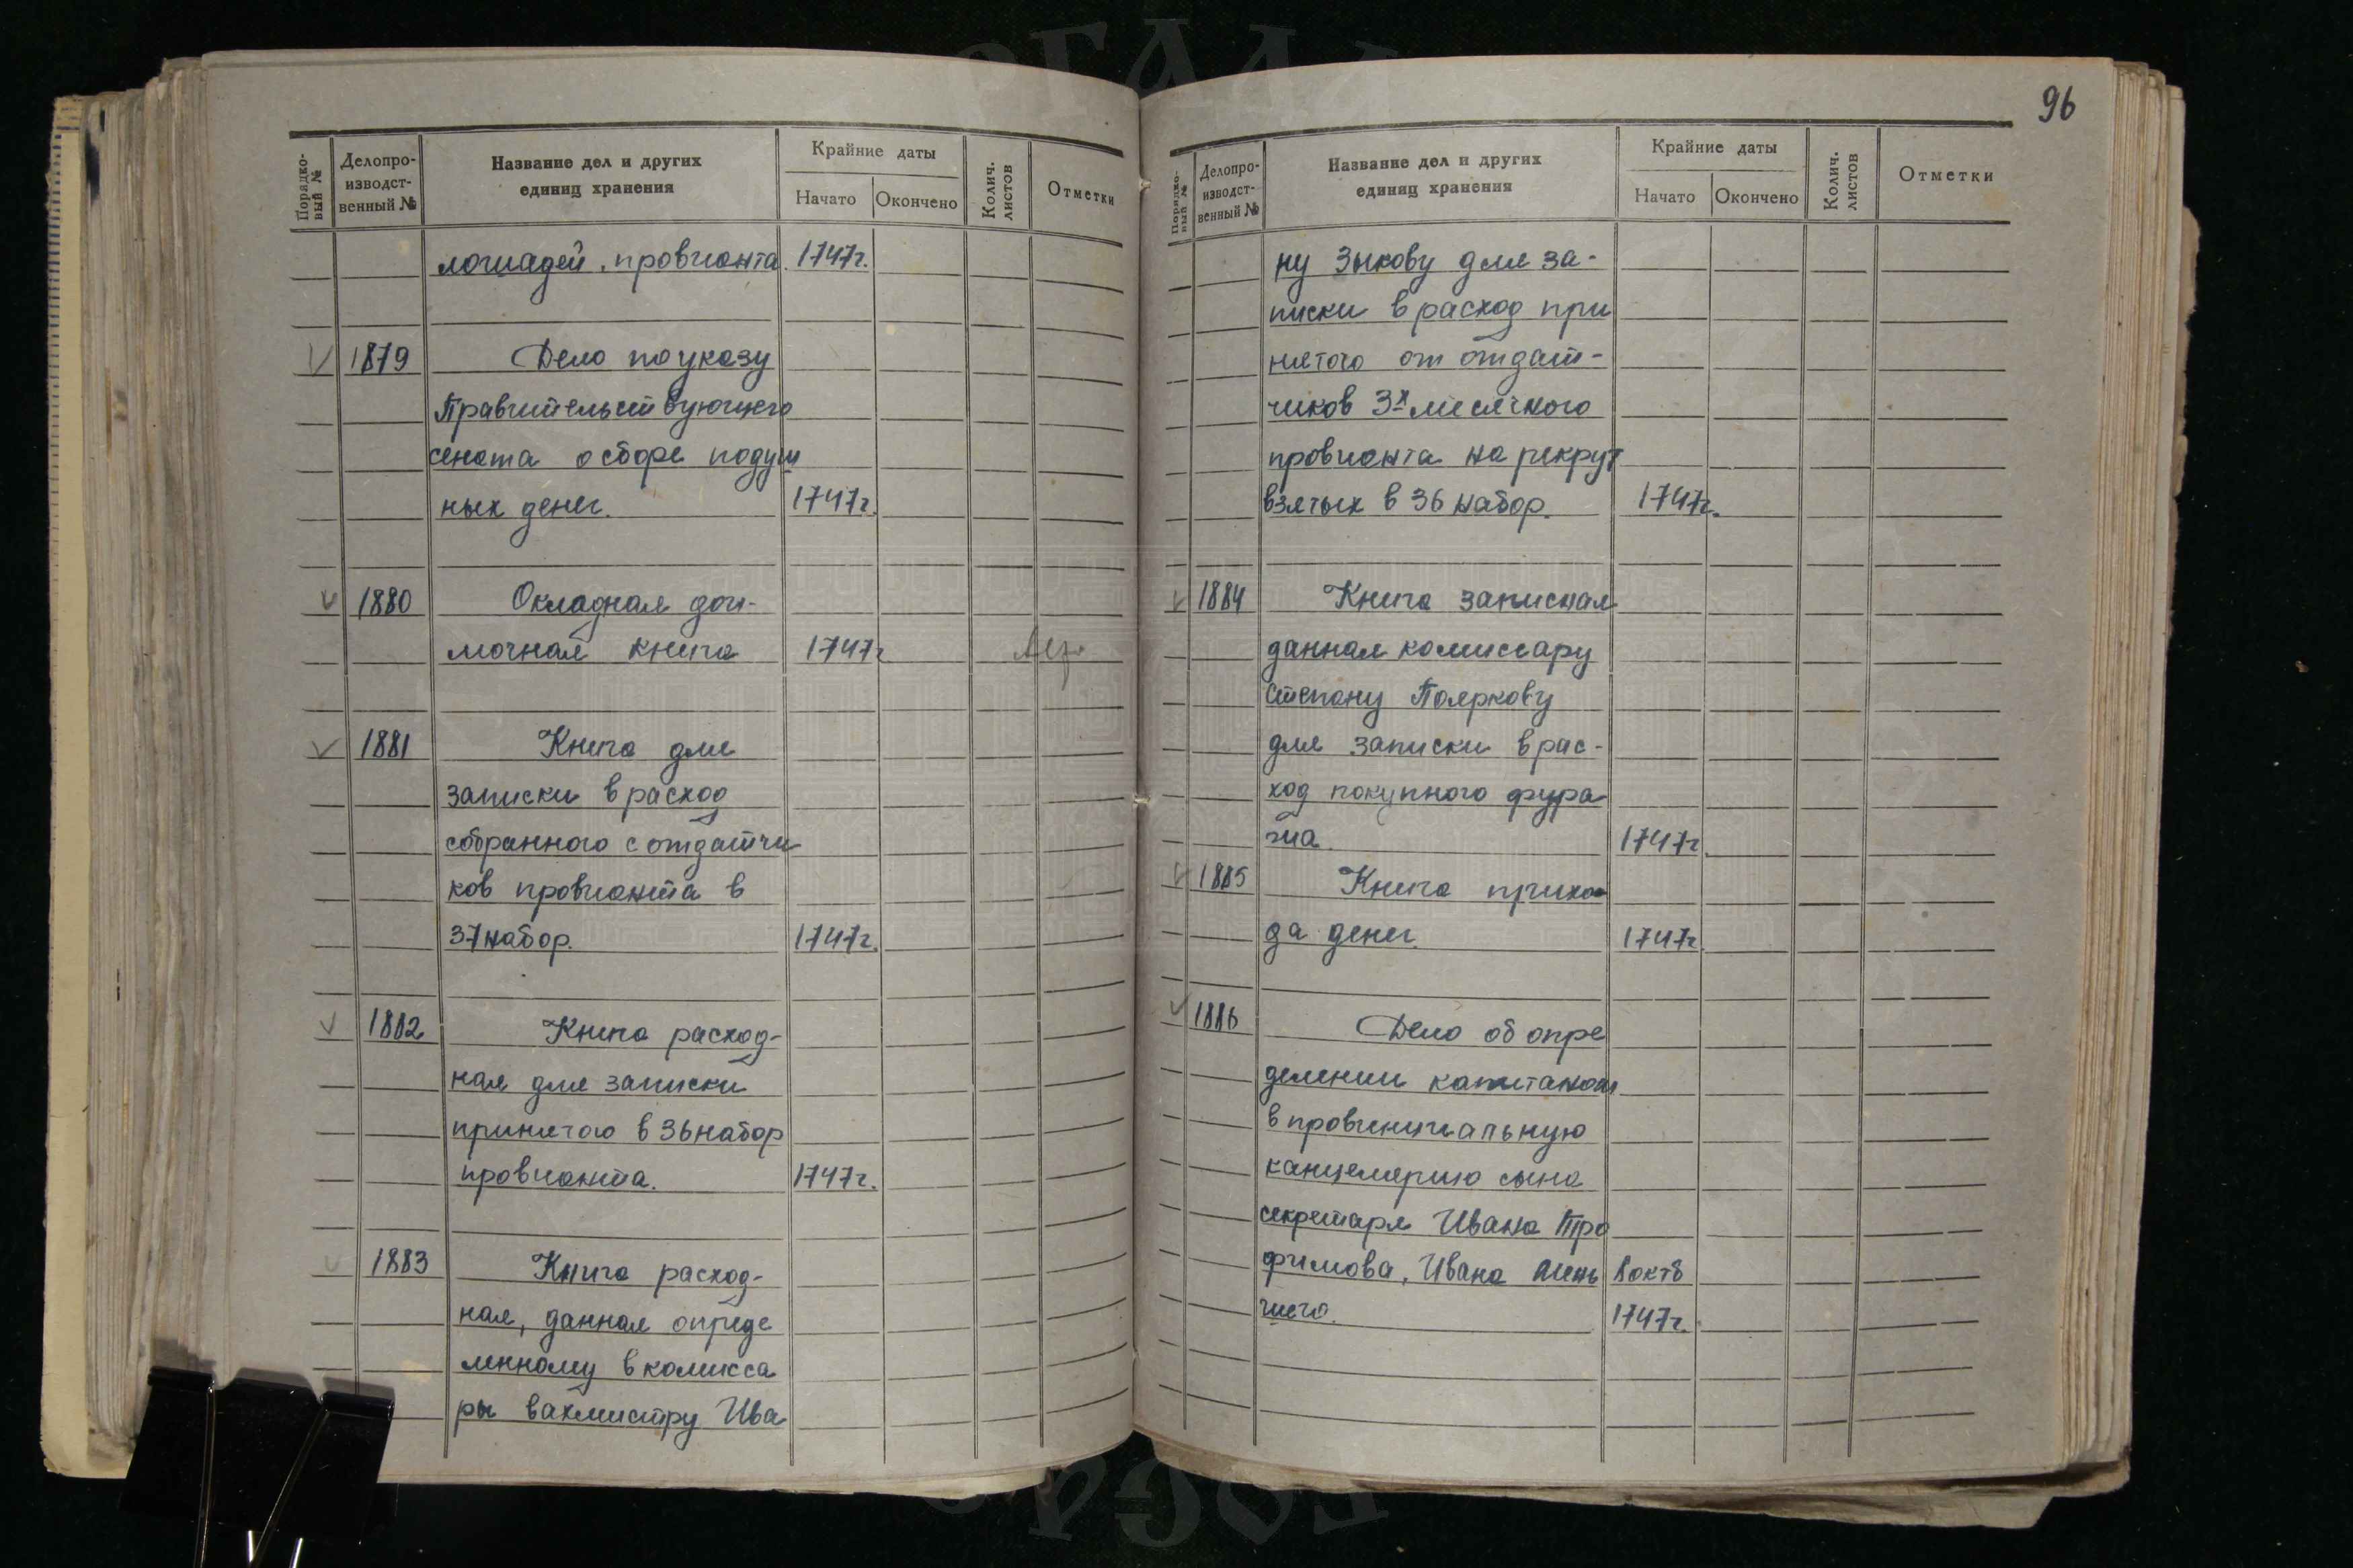 96
Порядко-
вый №
Делопро-
изводст-
венный №
Название дел и других
единиц хранения
Крайние даты
Начато
Окончено
Колич.
листов
Отметки
лошадей, провианта. 1747г.
V 1879 Дело по указу
Правительствующего
сената о сборе подуш
ных денег. 1747г.
V 1880 Окладная дои-
мочная книга 1747г
V 1881 Книга для
записки в расход
собранного с отдатчи
ков провианта в
37 набор. 1747г.
V 1882 Книга расход-
ная для записки
принятого в 36 набор
провианта. 1747г.
V 1883 Книга расход-
ная, данная опреде
ленному в комисса
ры вахмистру Ива
Порядко-
вый №
Делопро-
изводст-
венный №
Название дел и других
единиц хранения
Крайние даты
Начато
Окончено
Колич.
листов
Отметки
ну Зыкову для за-
писки в расход при
нятого от отдат-
чиков 3х месячного
провианта на рекрут
взятых в 36 набор. 1747г.
V 1884 Книга записная
данная комиссару
Степану Пояркову
для записки в рас-
ход покупного фура
жа. 1747г.
V 1885 Книга прихо-
да денег. 1747г.
V 1886 Дело об опре
делении капитаном
в провинциальную
канцелярию сына
секретаря Ивана Тро
фимова, Ивана мень 8 октб
шего. 1747г.